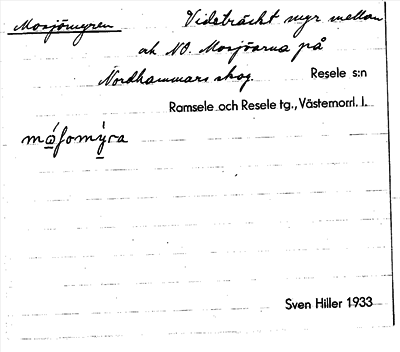 Mosjömyren Vidsträckt myr mellan
och NO. Mosjöarna på
Nordhammars skog. Resele s:n
Ramsele och Resele tg., Västernorrl. l.
Sven Hiller 1933